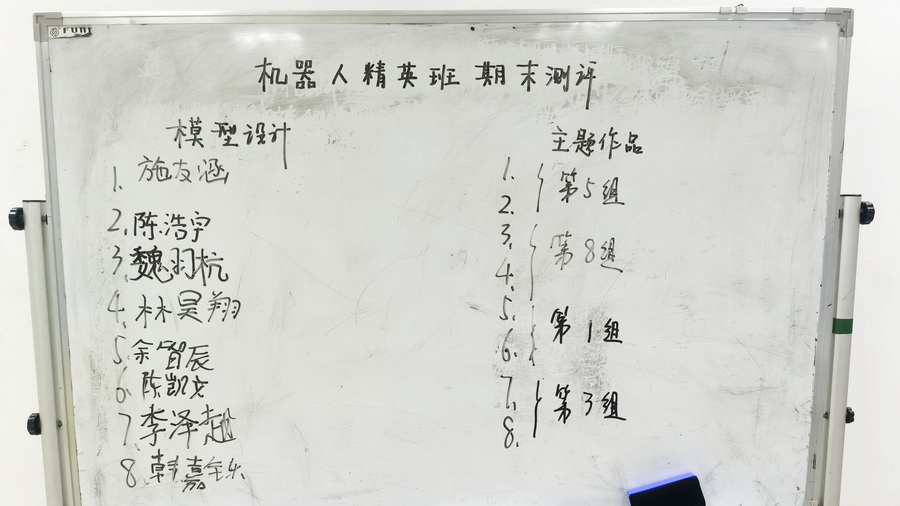 FUNI
机器人精英班 期末测评
模型设计
1. 施友涵
2. 陈浩宇
3. 魏羽杭
4. 林昊翔
5. 余智辰
6. 陈凯文
7. 李泽超
8. 韩嘉乐
主题作品
1.
2.
第5组
3.
4.
第8组
5.
6.
第1组
7.
8.
第3组